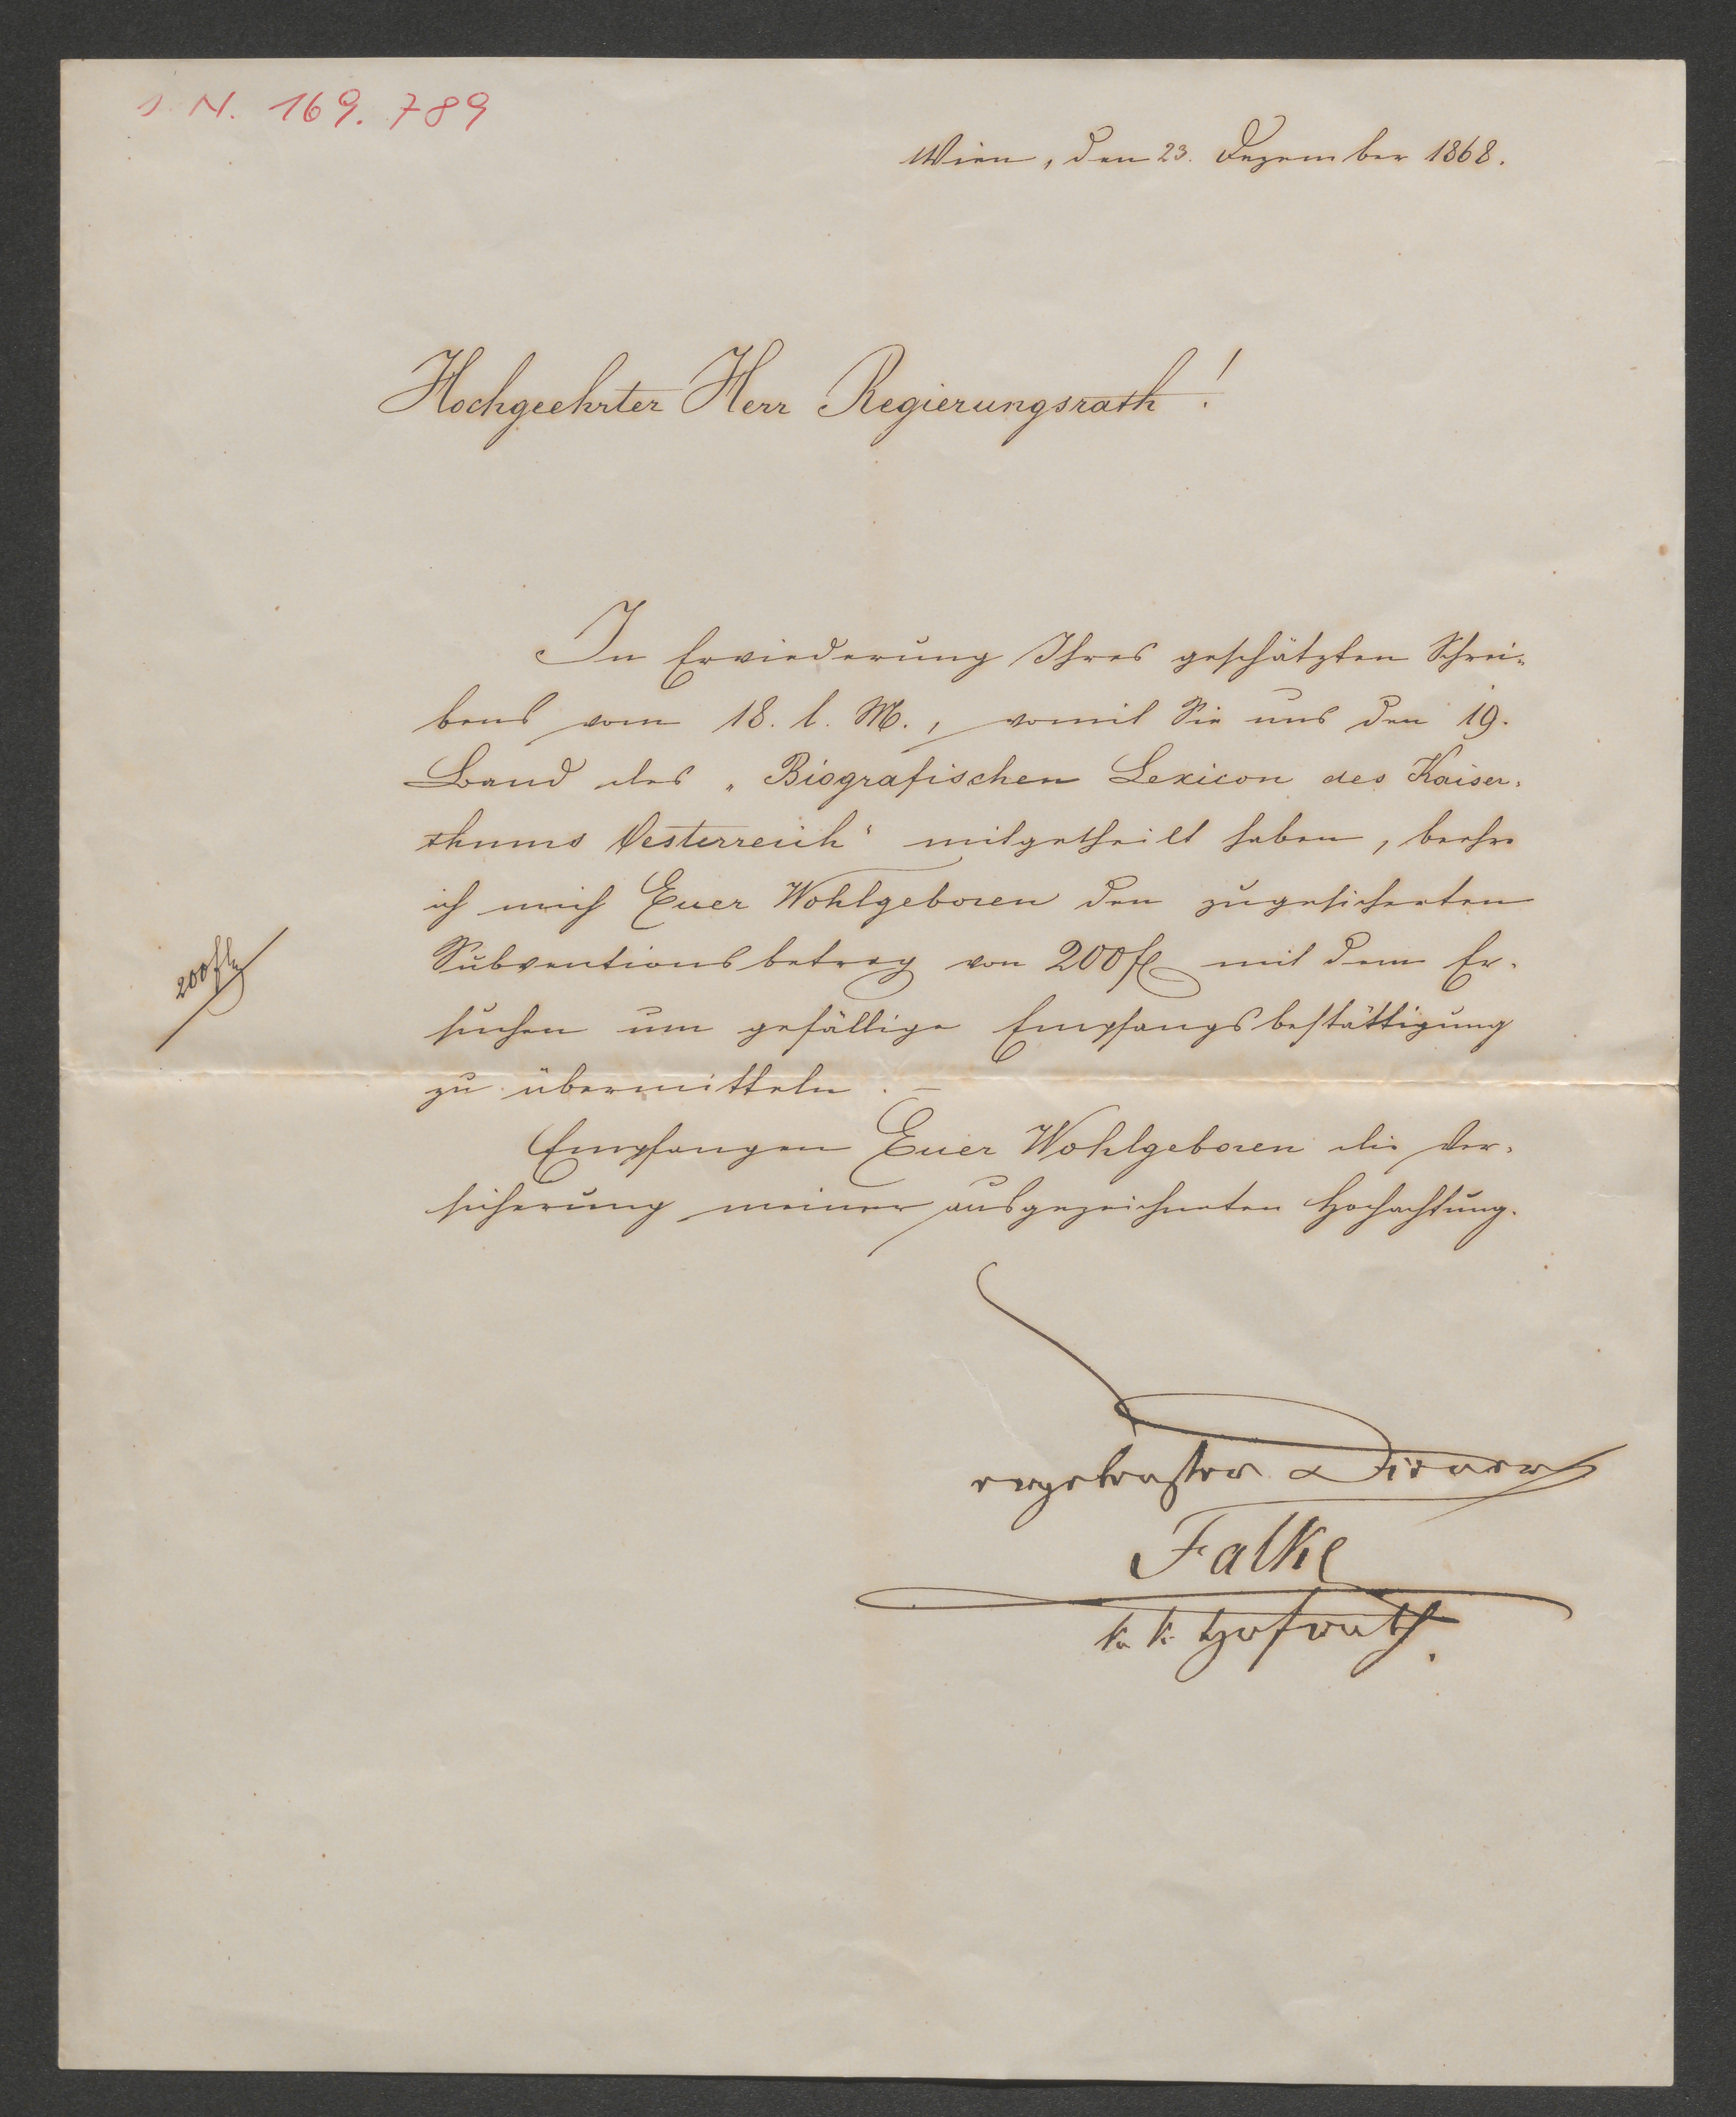 J. N. 169.789
Wien, den 23. Dezember 1868.
Hochgeehrter Herr Regierungsrath!
In Erwiederung Ihres geschätzten Schrei-
bens vom 18. l. M., womit Sie uns den 19.
Band des „Biografischen Lexicon des Kaiser-
thums Oesterreich“ mitgetheilt haben, beehre
ich mich Euer Wohlgeboren den zugesicherten
Subventionsbetrag von 200 fl mit dem Er-
200 fl
suchen um gefällige Empfangsbestättigung
zu übermitteln. –
Empfangen Euer Wohlgeboren die Ver-
sicherung meiner ausgezeichneten Hochachtung.
ergebenster Diener
Falke
k. k. Hofrath.